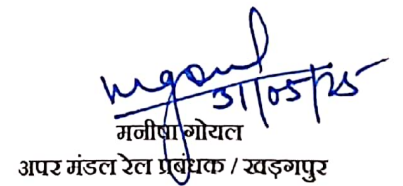 mgoul
31/05/25
मनीषा गोयल
अपर मंडल रेल प्रबंधक / खड़गपुर